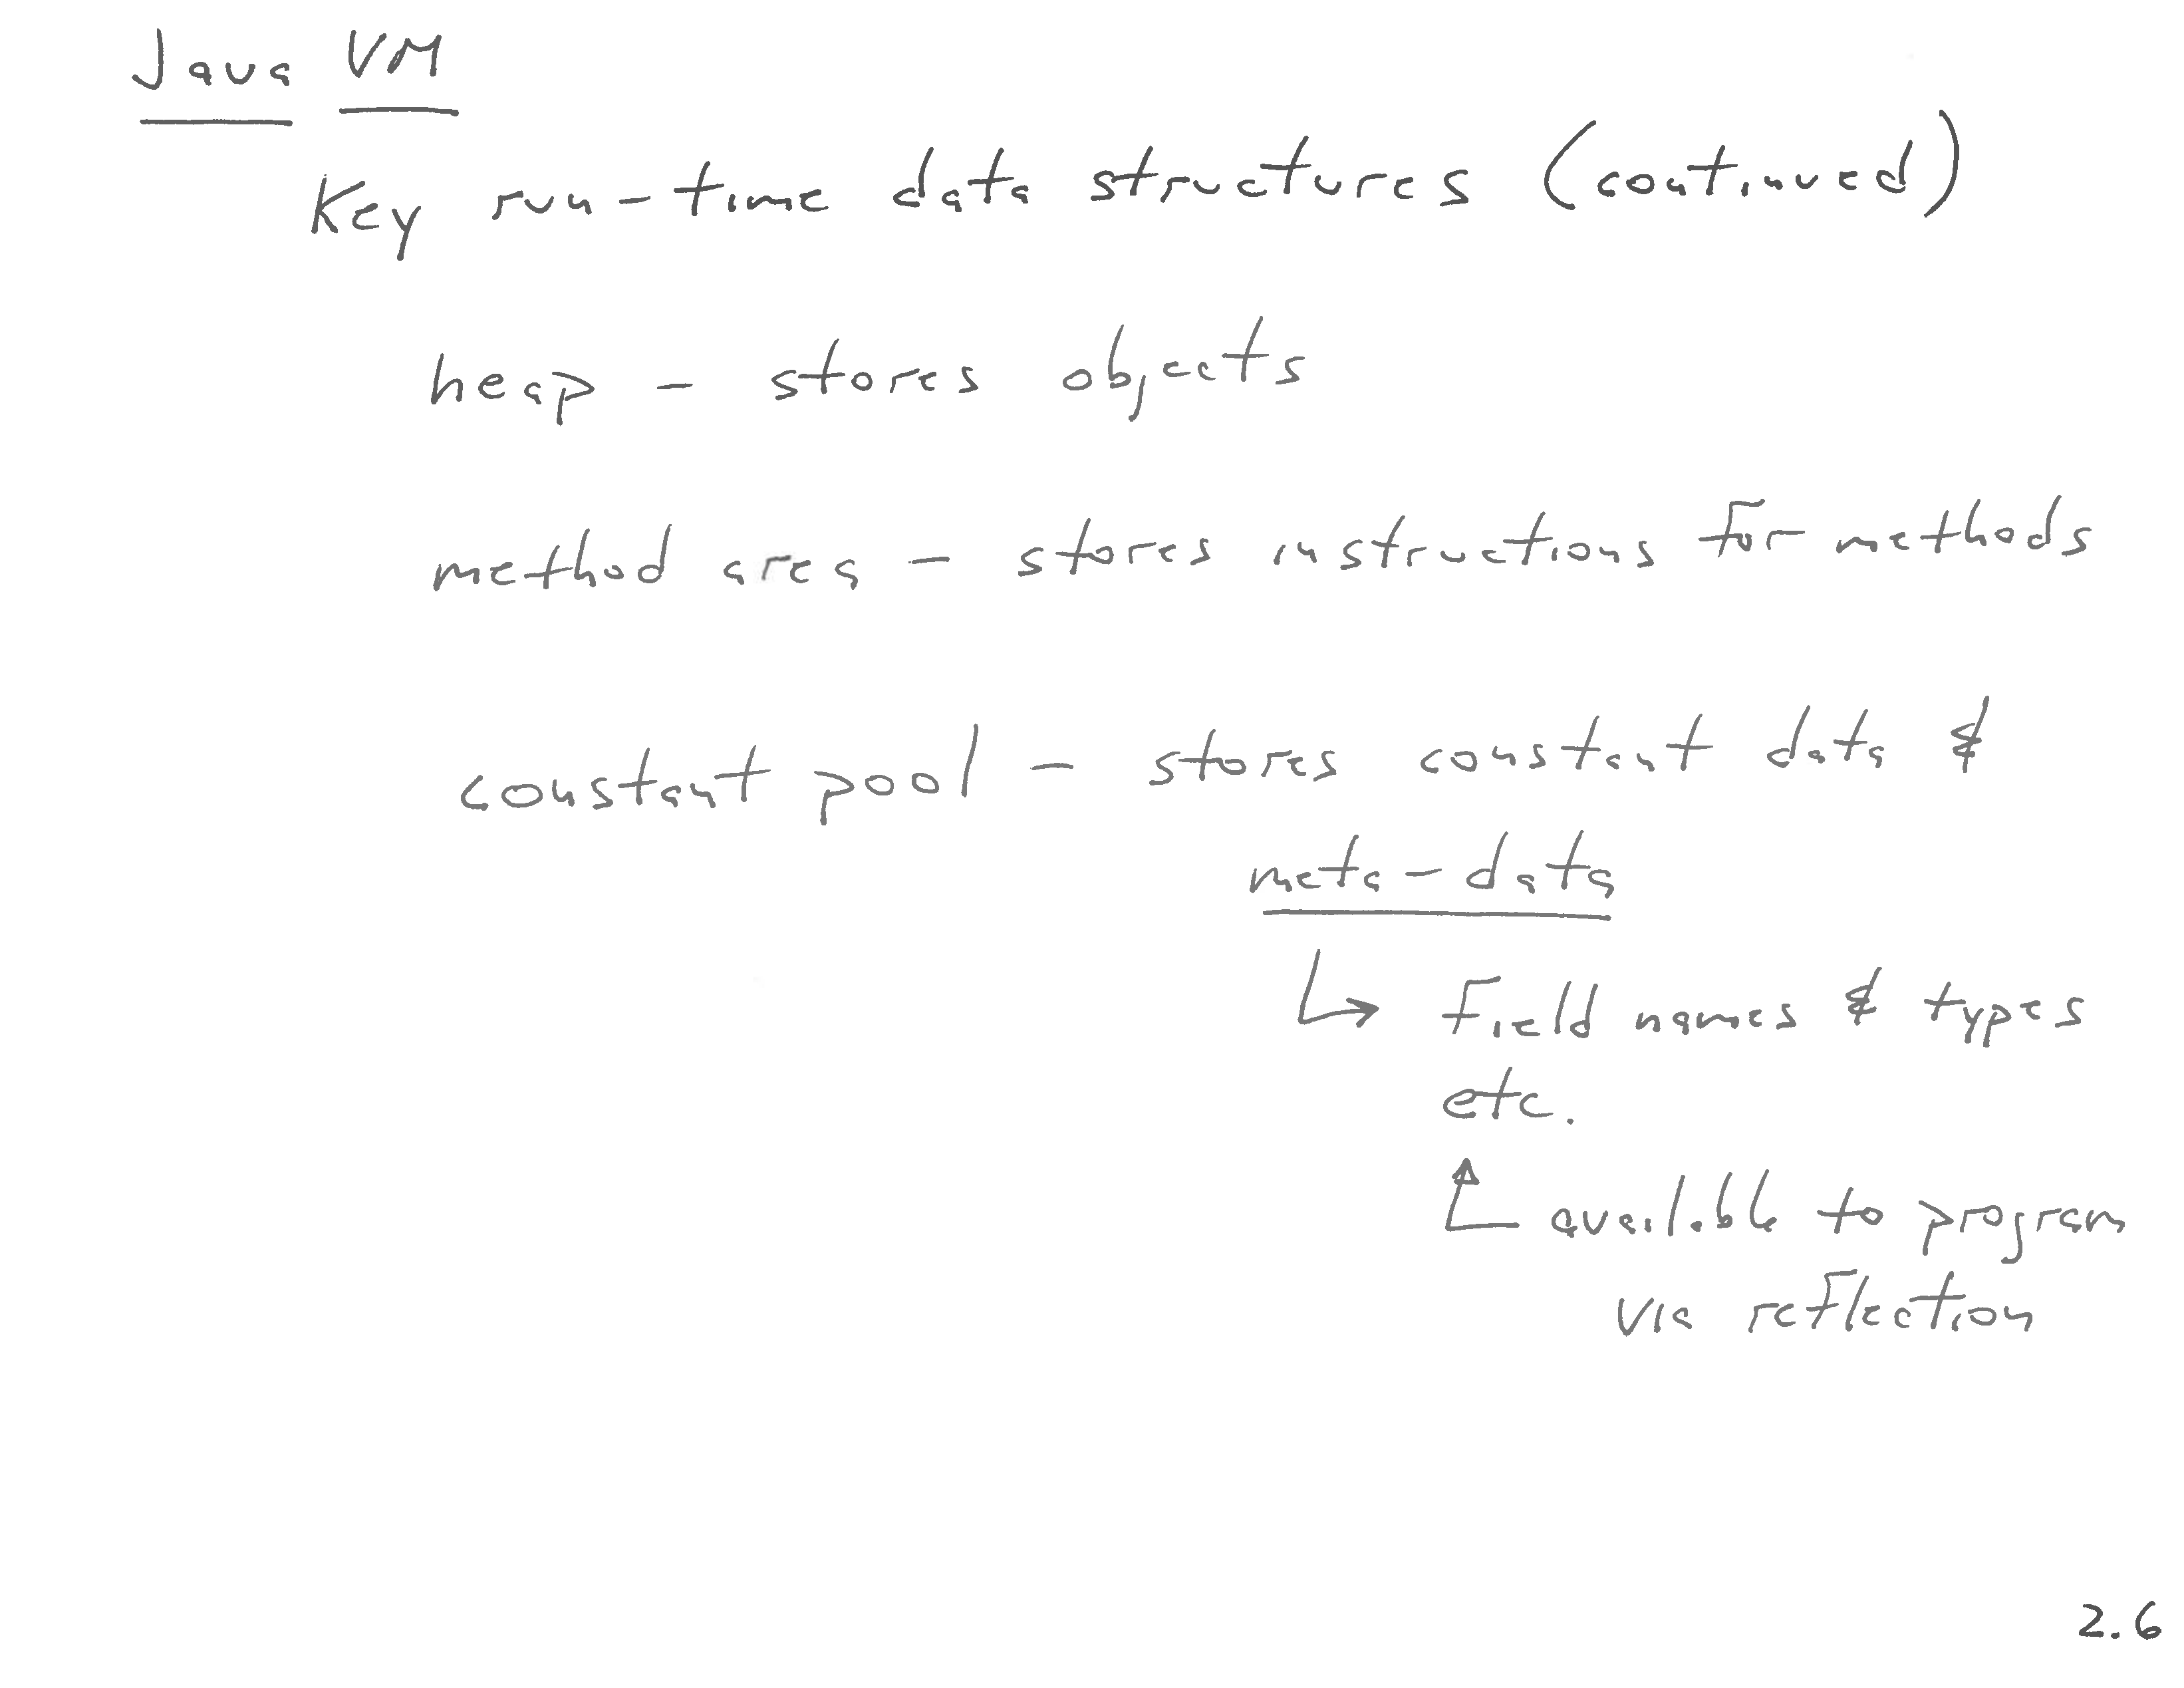 Java VM
Key run-time data structures (continued)
heap - stores objects
method area - stores instructions for methods
constant pool - stores constant data &
meta-data
↳ Field names & types
etc.
available to program
via reflection
2.6